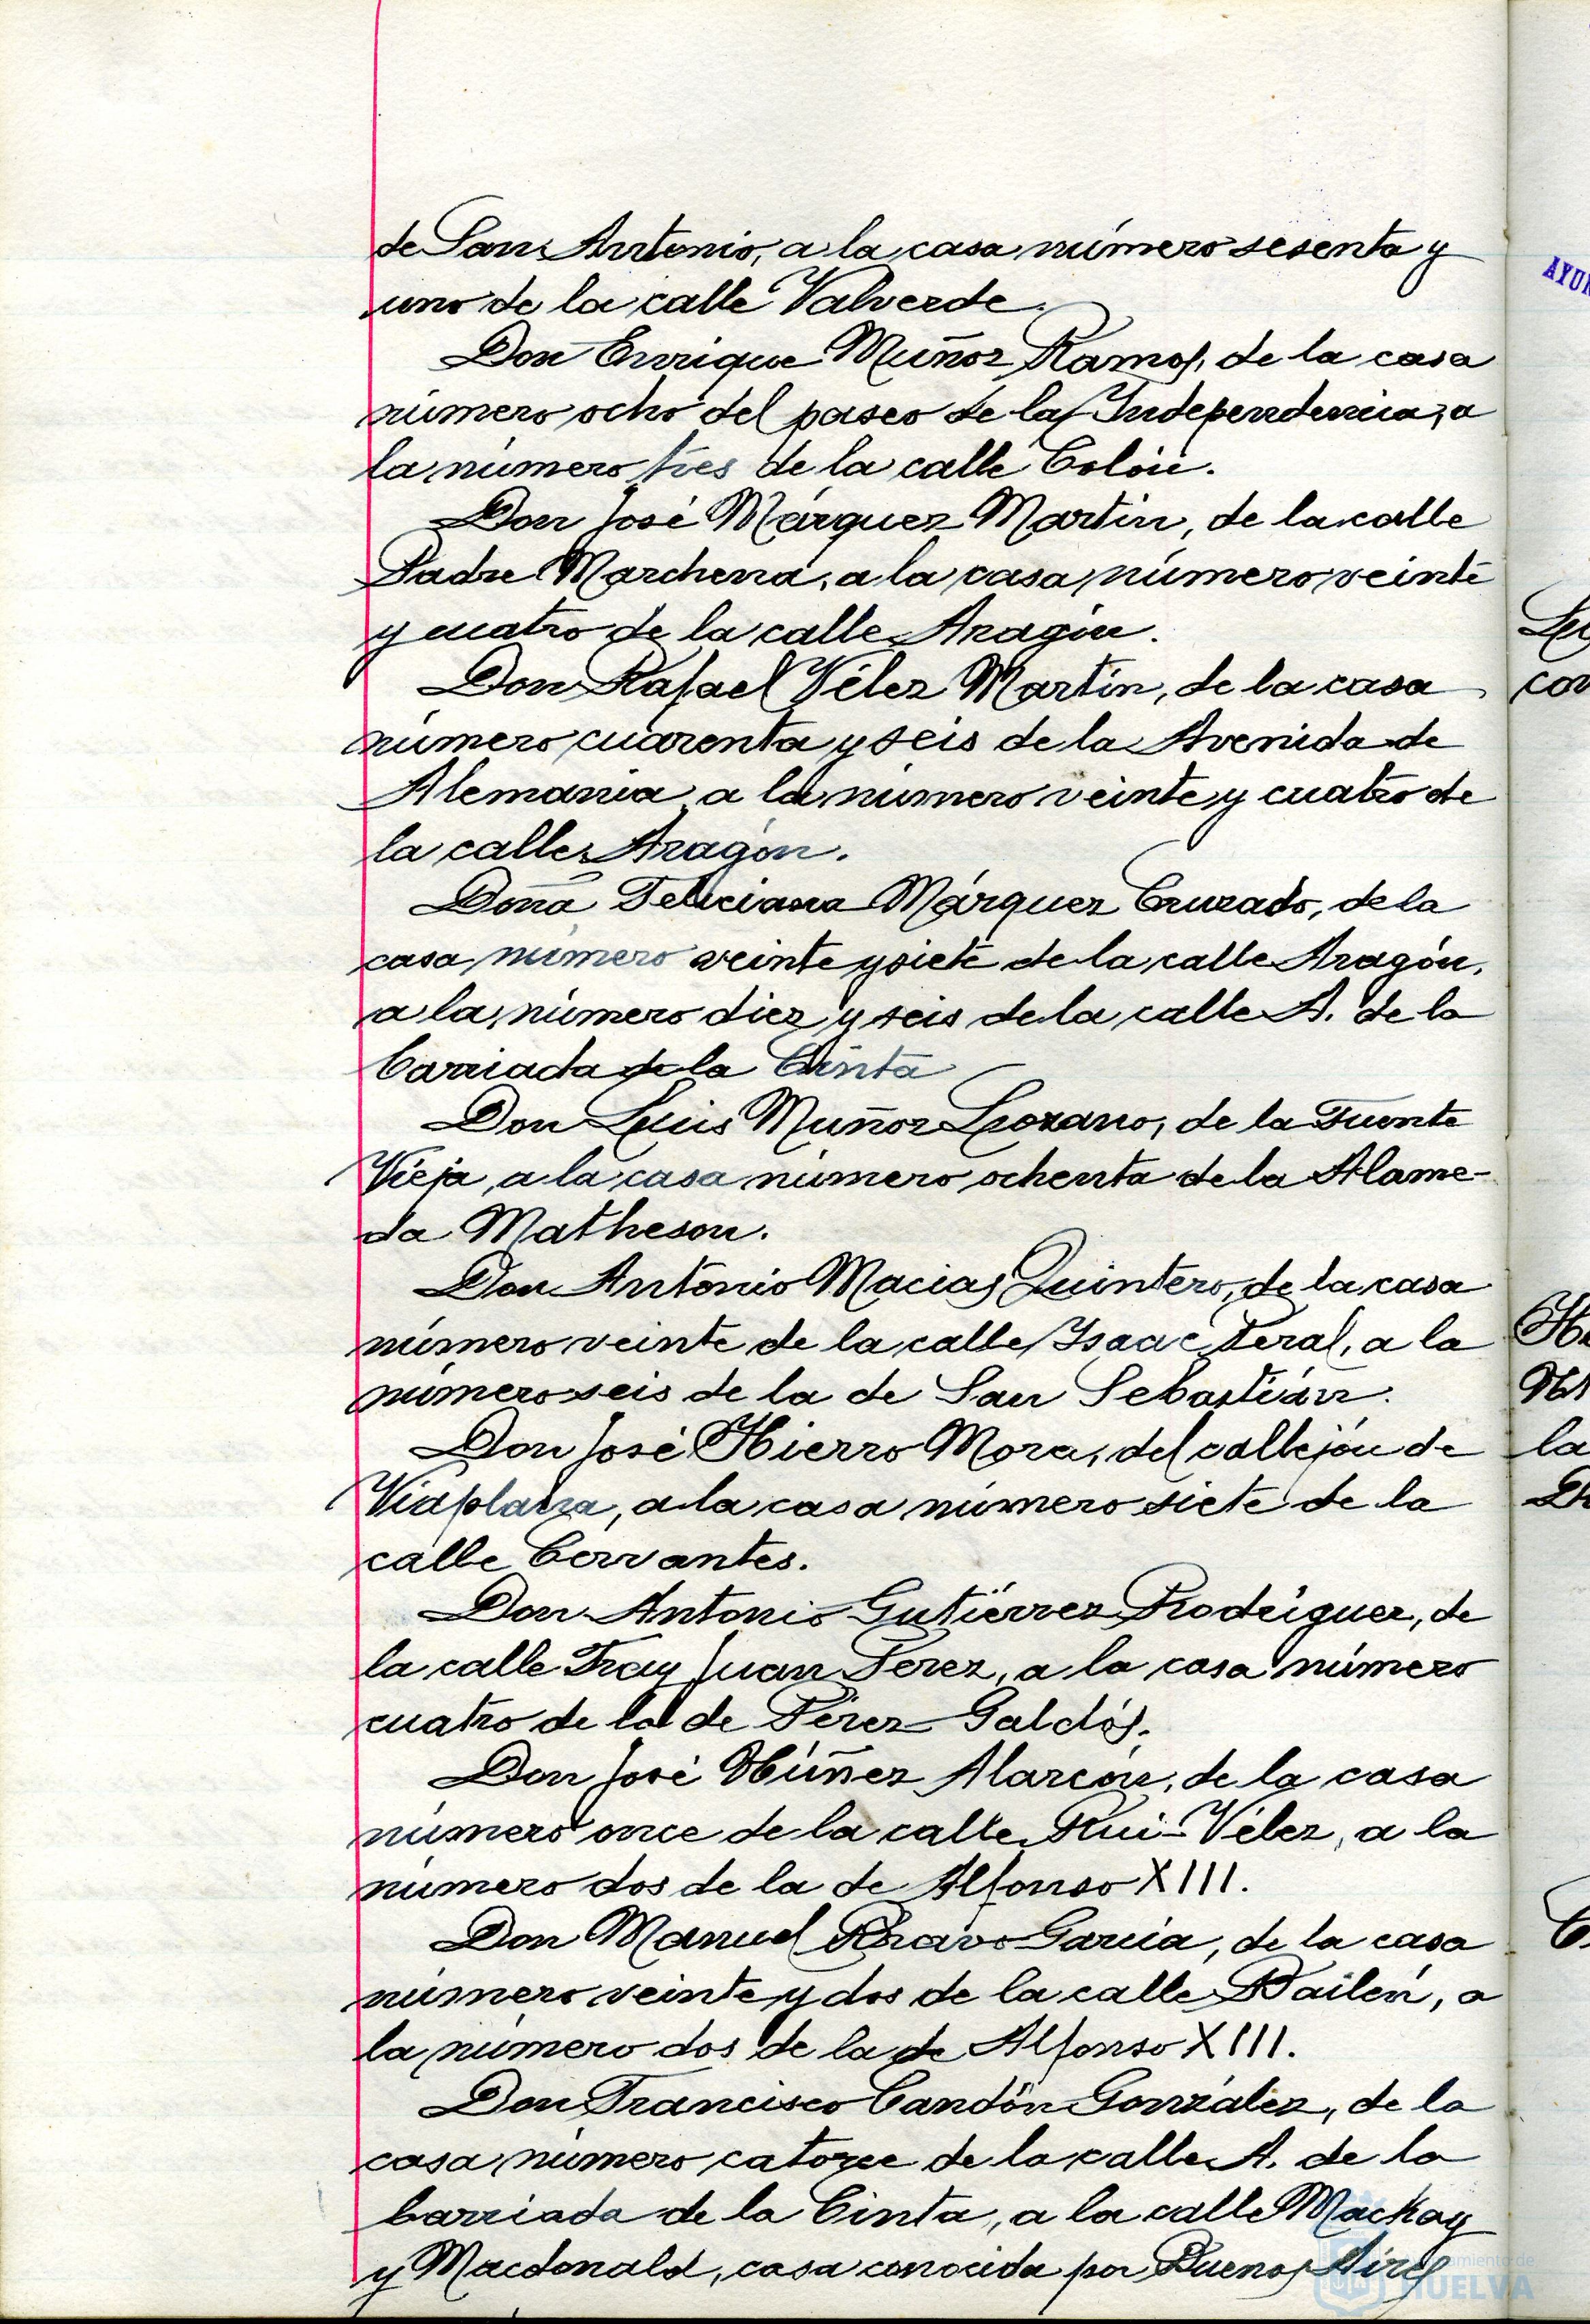 de San Antonio, a la casa número sesenta y
uno de la calle Valverde.
Don Enrique Muñoz Ramos, de la casa
número ocho del paseo de la Independencia, a
la número tres de la calle Colón.
Don José Márquez Martín, de la calle
Padre Marchena, a la casa número veinte
y cuatro de la calle Aragón.
Don Rafael Vélez Martín, de la casa
número cuarenta y seis de la Avenida de
Alemania a la número veinte y cuatro de
la calle Aragón.
Doña Feliciana Márquez Cruzado, de la
casa número veinte y siete de la calle Aragón,
a la número diez y seis de la calle A. de la
barriada de la Cinta
Don Luis Muñoz Lozano, de la Fuente
Vieja, a la casa número ochenta de la Alame-
da Matheson.
Don Antonio Macias Quintero, de la casa
número veinte de la calle Isaac Peral, a la
número seis de la de San Sebastián.
Don José Hierro Mora, del callejón de
Viaplana, a la casa número siete de la
calle Cervantes.
Don Antonio Gutiérrez Rodríguez, de
la calle Fray Juan Pérez, a la casa número
cuatro de la de Pérez Galdós.
Don José Núñez Alarcón, de la casa
número once de la calle Rui-Vélez, a la
número dos de la de Alfonso XIII.
Don Manuel Bravo García, de la casa
número veinte y dos de la calle Bailén, a
la número dos de la de Alfonso XIII.
Don Francisco Candón González, de la
casa número catorce de la calle A. de la
barriada de la Cinta, a la calle Mackay
y Macdonald, casa conocida por Buenos Aires
Ayuntamiento de
HUELVA